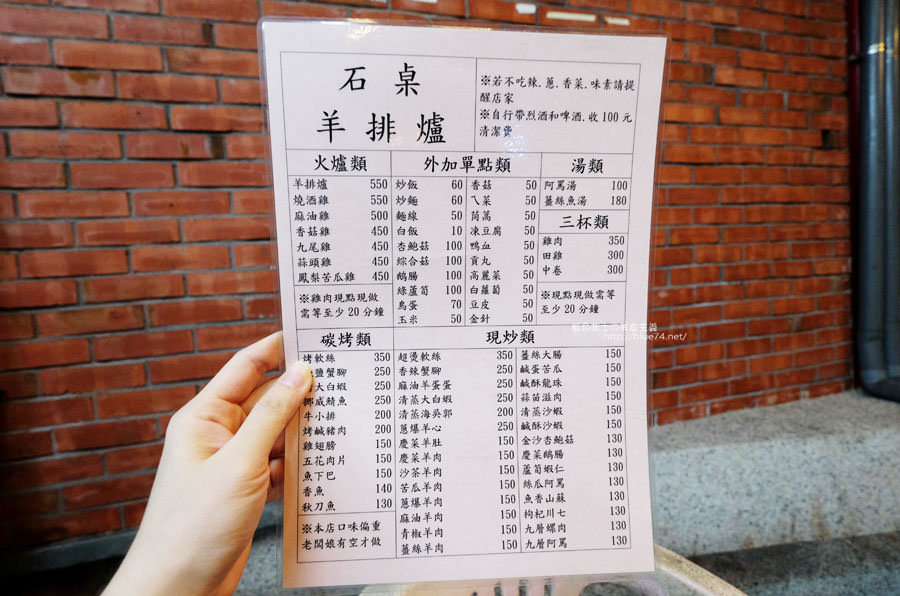 石桌
羊排爐
※若不吃辣.蔥.香菜.味素請提
醒店家
※自行帶烈酒和啤酒.收100元
清潔費
火爐類
羊排爐 550
燒酒雞 550
麻油雞 500
香菇雞 450
九尾雞 450
蒜頭雞 450
鳳梨苦瓜雞 450
※雞肉現點現做
需等至少20分鐘
外加單點類
炒飯 60
炒麵 60
麵線 50
白飯 10
杏鮑菇 100
綜合菇 100
鵝腸 100
綠蘆筍 100
鳥蛋 70
玉米 50
香菇 50
ㄟ菜 50
茼蒿 50
凍豆腐 50
鴨血 50
貢丸 50
高麗菜 50
白蘿蔔 50
豆皮 50
金針 50
湯類
阿罵湯 100
薑絲魚湯 180
三杯類
雞肉 350
田雞 300
中卷 300
※現點現做需等
至少20分鐘
碳烤類
烤軟絲 350
鹽蟹腳 200
大白蝦 250
挪威鯖魚 250
牛小排 200
烤鹹豬肉 200
雞翅膀 150
五花肉片 150
魚下巴 150
香魚 140
秋刀魚 130
※本店口味偏重
老闆娘有空才做
現炒類
超燙軟絲 350
香辣蟹腳 200
麻油羊蛋蛋 250
清蒸大白蝦 250
清蒸海吳郭 200
蔥爆羊心 200
慶菜羊肚 150
慶菜羊肉 150
沙茶羊肉 150
苦瓜羊肉 150
蔥爆羊肉 150
麻油羊肉 150
青椒羊肉 150
薑絲羊肉 150
薑絲大腸 150
鹹蛋苦瓜 150
鹹酥龍珠 150
蒜苗滋肉 150
清蒸沙蝦 150
鹹酥沙蝦 150
金沙杏鮑菇 130
慶菜鵝腸 130
蘆筍蝦仁 130
絲瓜阿罵 130
魚香山蘇 130
枸杞川七 130
九層螺肉 130
九層阿罵 130